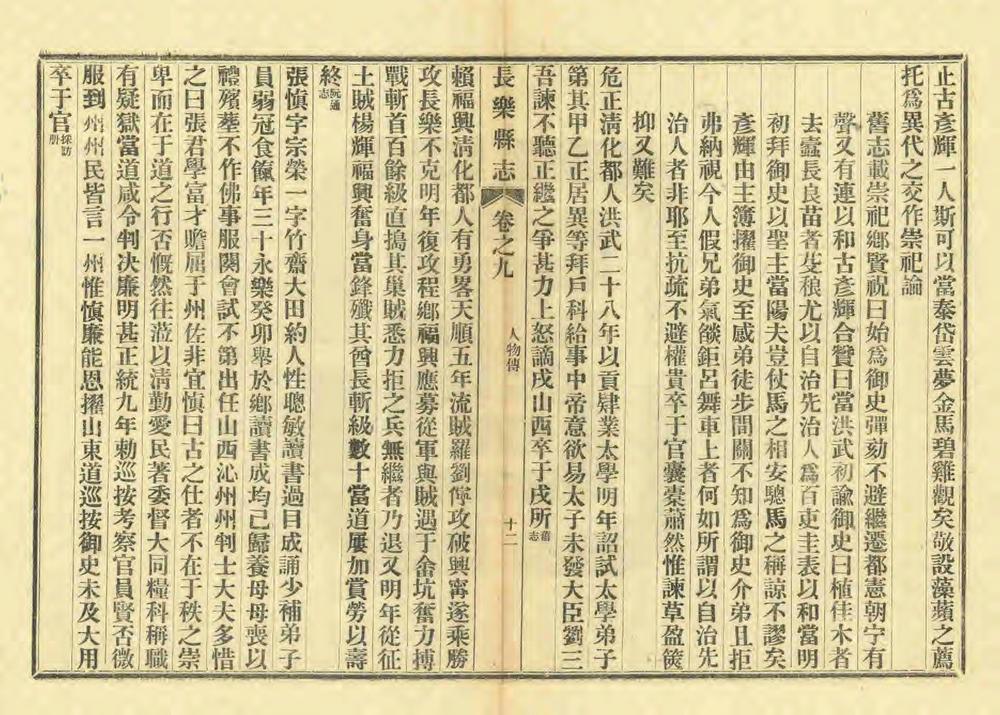 止古彥輝一人斯可以當泰岱雲夢金馬碧雞觀矣敬設藻蘋之薦
托爲異代之交作崇祀論
舊志載崇祀鄉賢祝曰始爲御史彈劾不避繼遷都憲朝宁有
聲又有連以和古彥輝合贊曰當洪武初諭御史曰植佳木者
去蠹長良苗者芟稂尤以自治先治人爲百吏主表以和當明
初拜御史以聖主當陽夫豈仗馬之相安驄馬之稱諒不謬矣
彥輝由主簿擢御史至感弟徒步間關不知爲御史介弟且拒
弗納視今人假兄弟氣燄鉅呂舞車上者何如所謂以自治先
治人者非耶至抗疏不避權貴卒于官囊橐蕭然惟諫草盈篋
抑又難矣
危正淸化都人洪武二十八年以貢肄業太學明年詔試太學弟子
第其甲乙正居異等拜戶科給事中帝意欲易太子未發大臣劉三
吾諫不聽正繼之爭甚力上怒謫戍山西卒于戍所舊志
長樂縣志
卷之九
人物傳
十二
賴福興淸化都人有勇畧天順五年流賊羅劉寧攻破興寗遂乘勝
攻長樂不克明年復攻程鄉福興應募從軍與賊遇于畲坑奮力搏
戰斬首百餘級直搗其巢賊悉力拒之兵無繼者乃退又明年從征
土賊楊輝福興奮身當鋒殲其酋長斬級數十當道屢加賞勞以壽
終阮通志
張愼字宗榮一字竹齋大田約人性聰敏讀書過目成誦少補弟子
員弱冠食餼年三十永樂癸卯舉於鄉讀書成均已歸養母母喪以
禮殯葬不作佛事服闋會試不第出任山西沁州州判士大夫多惜
之曰張君學富才贍屈于州佐非宜愼曰古之仕者不在于秩之崇
卑而在于道之行否慨然往蒞以淸勤愛民著委督大同糧科稱職
有疑獄當道咸令判決廉明甚正統九年勅巡按考察官員賢否徵
服到州州民皆言一州惟愼廉能恩擢山東道巡按御史未及大用
卒于官採訪册